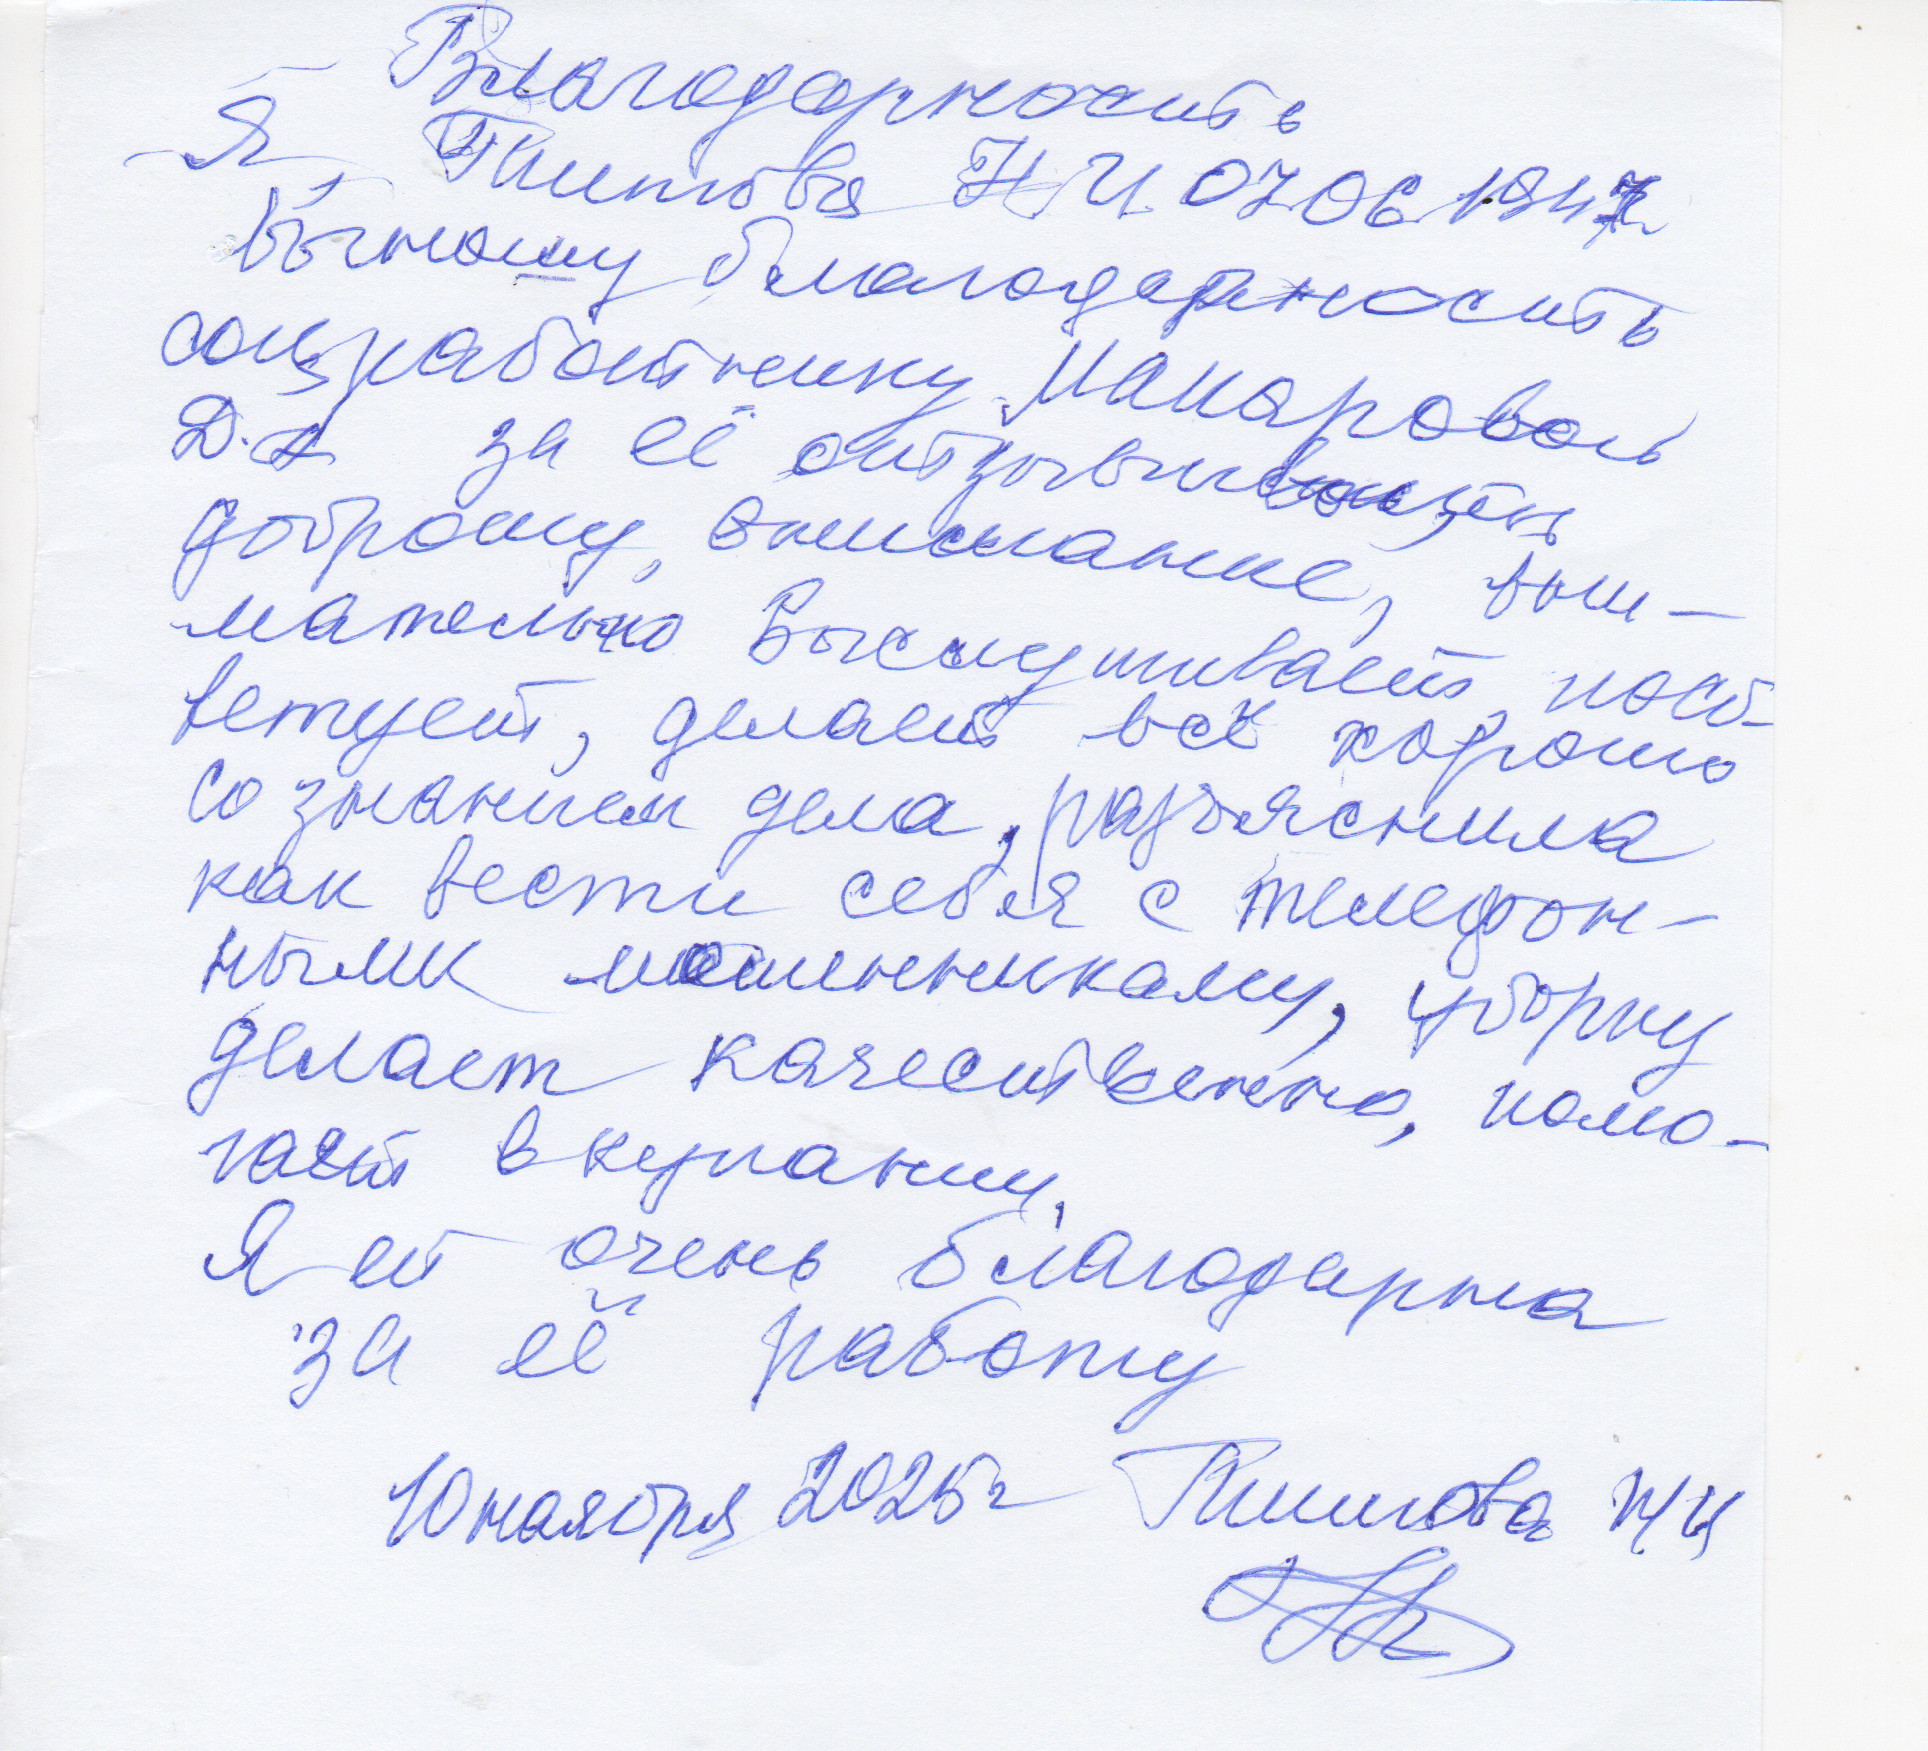 Благодарность
Я Титова Н И 07 06 1947
Выношу благодарность
соцработнику Макаровой
Д.А за её отзывчивость
доброту, внимание, вни-
мательно выслушивает, посо-
ветует, делает всё хорошо
со знанием дела, разъяснила
как вести себя с телефон-
ными мошенниками, уборку
делает качественно, помо-
гает в купании.
Я ей очень благодарна
за её работу
10 ноября 2025 г Титова Н И